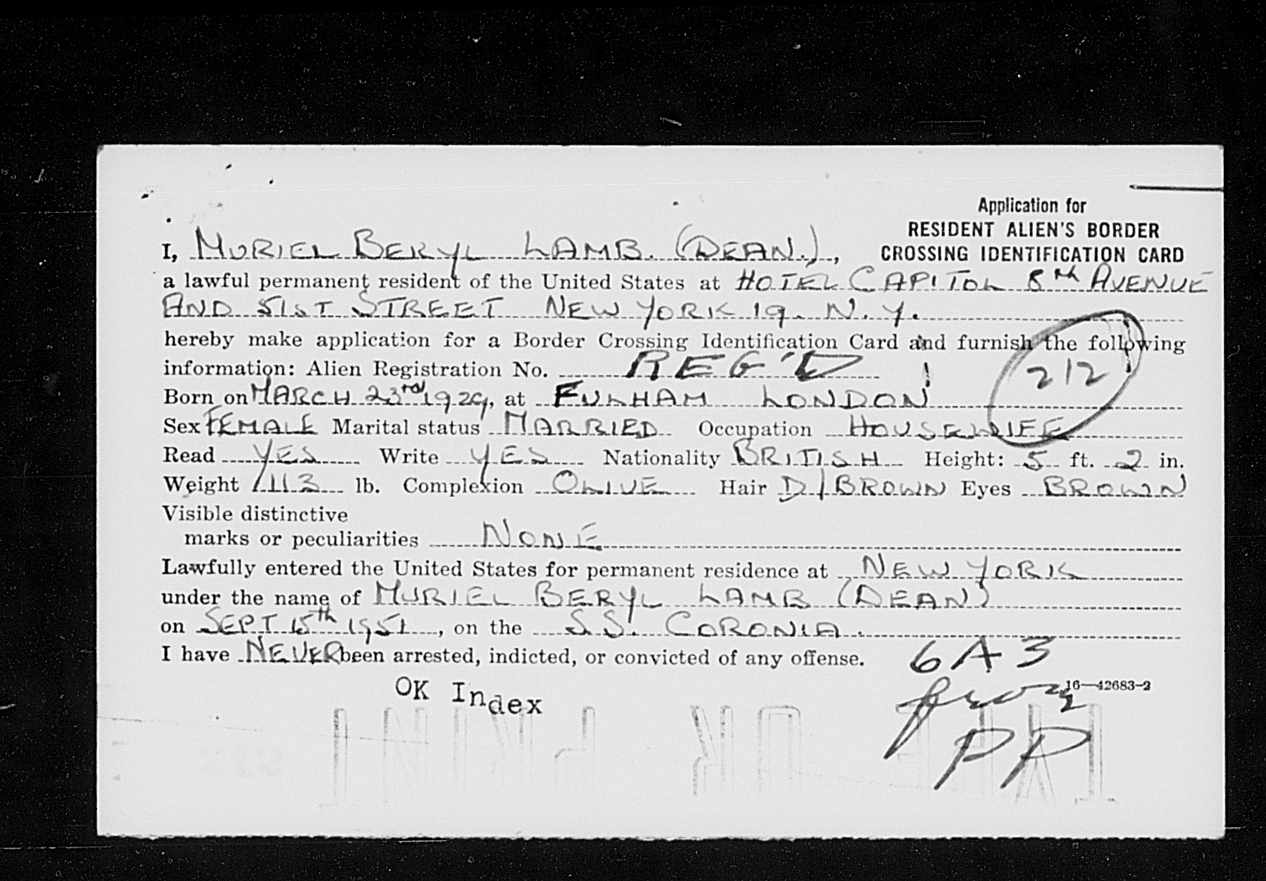 Application for
RESIDENT ALIEN'S BORDER
CROSSING IDENTIFICATION CARD
I, MURIEL BERYL LAMB. (DEAN.),
a lawful permanent resident of the United States at HOTEL CAPITOL 8TH AVENUE
AND 51ST STREET NEW YORK 19. N.Y.
hereby make application for a Border Crossing Identification Card and furnish the following
information: Alien Registration No. REG'D
212
Born on MARCH 23rd 1929, at FULHAM LONDON
Sex FEMALE Marital status MARRIED Occupation HOUSEWIFE
Read YES Write YES Nationality BRITISH Height: 5 ft. 2 in.
Weight 113 lb. Complexion OLIVE Hair D/BROWN Eyes BROWN
Visible distinctive
marks or peculiarities NONE
Lawfully entered the United States for permanent residence at NEW YORK
under the name of MURIEL BERYL LAMB (DEAN)
on SEPT 15th 1951, on the S.S. CORONIA.
I have NEVER been arrested, indicted, or convicted of any offense.
6A3
16—42683-2
OK Index
from
PP
TYPE OR PRINT